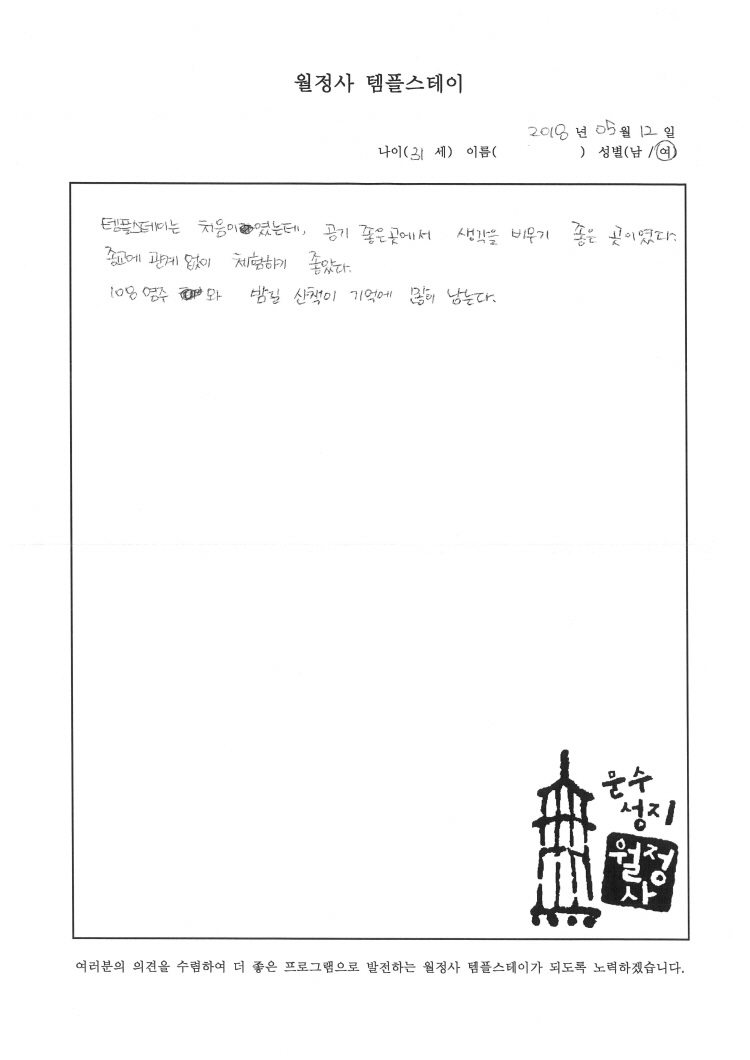 월정사 템플스테이
2018 년 05 월 12 일
나이(31 세) 이름( ) 성별(남 / 여)
템플스테이는 처음이였는데, 공기 좋은곳에서 생각을 비우기 좋은 곳이였다.
종교에 관계 없이 체험하기 좋았다.
108 염주 와 밤길 산책이 기억에 많이 남는다.
문수
성지
월정
사
여러분의 의견을 수렴하여 더 좋은 프로그램으로 발전하는 월정사 템플스테이가 되도록 노력하겠습니다.